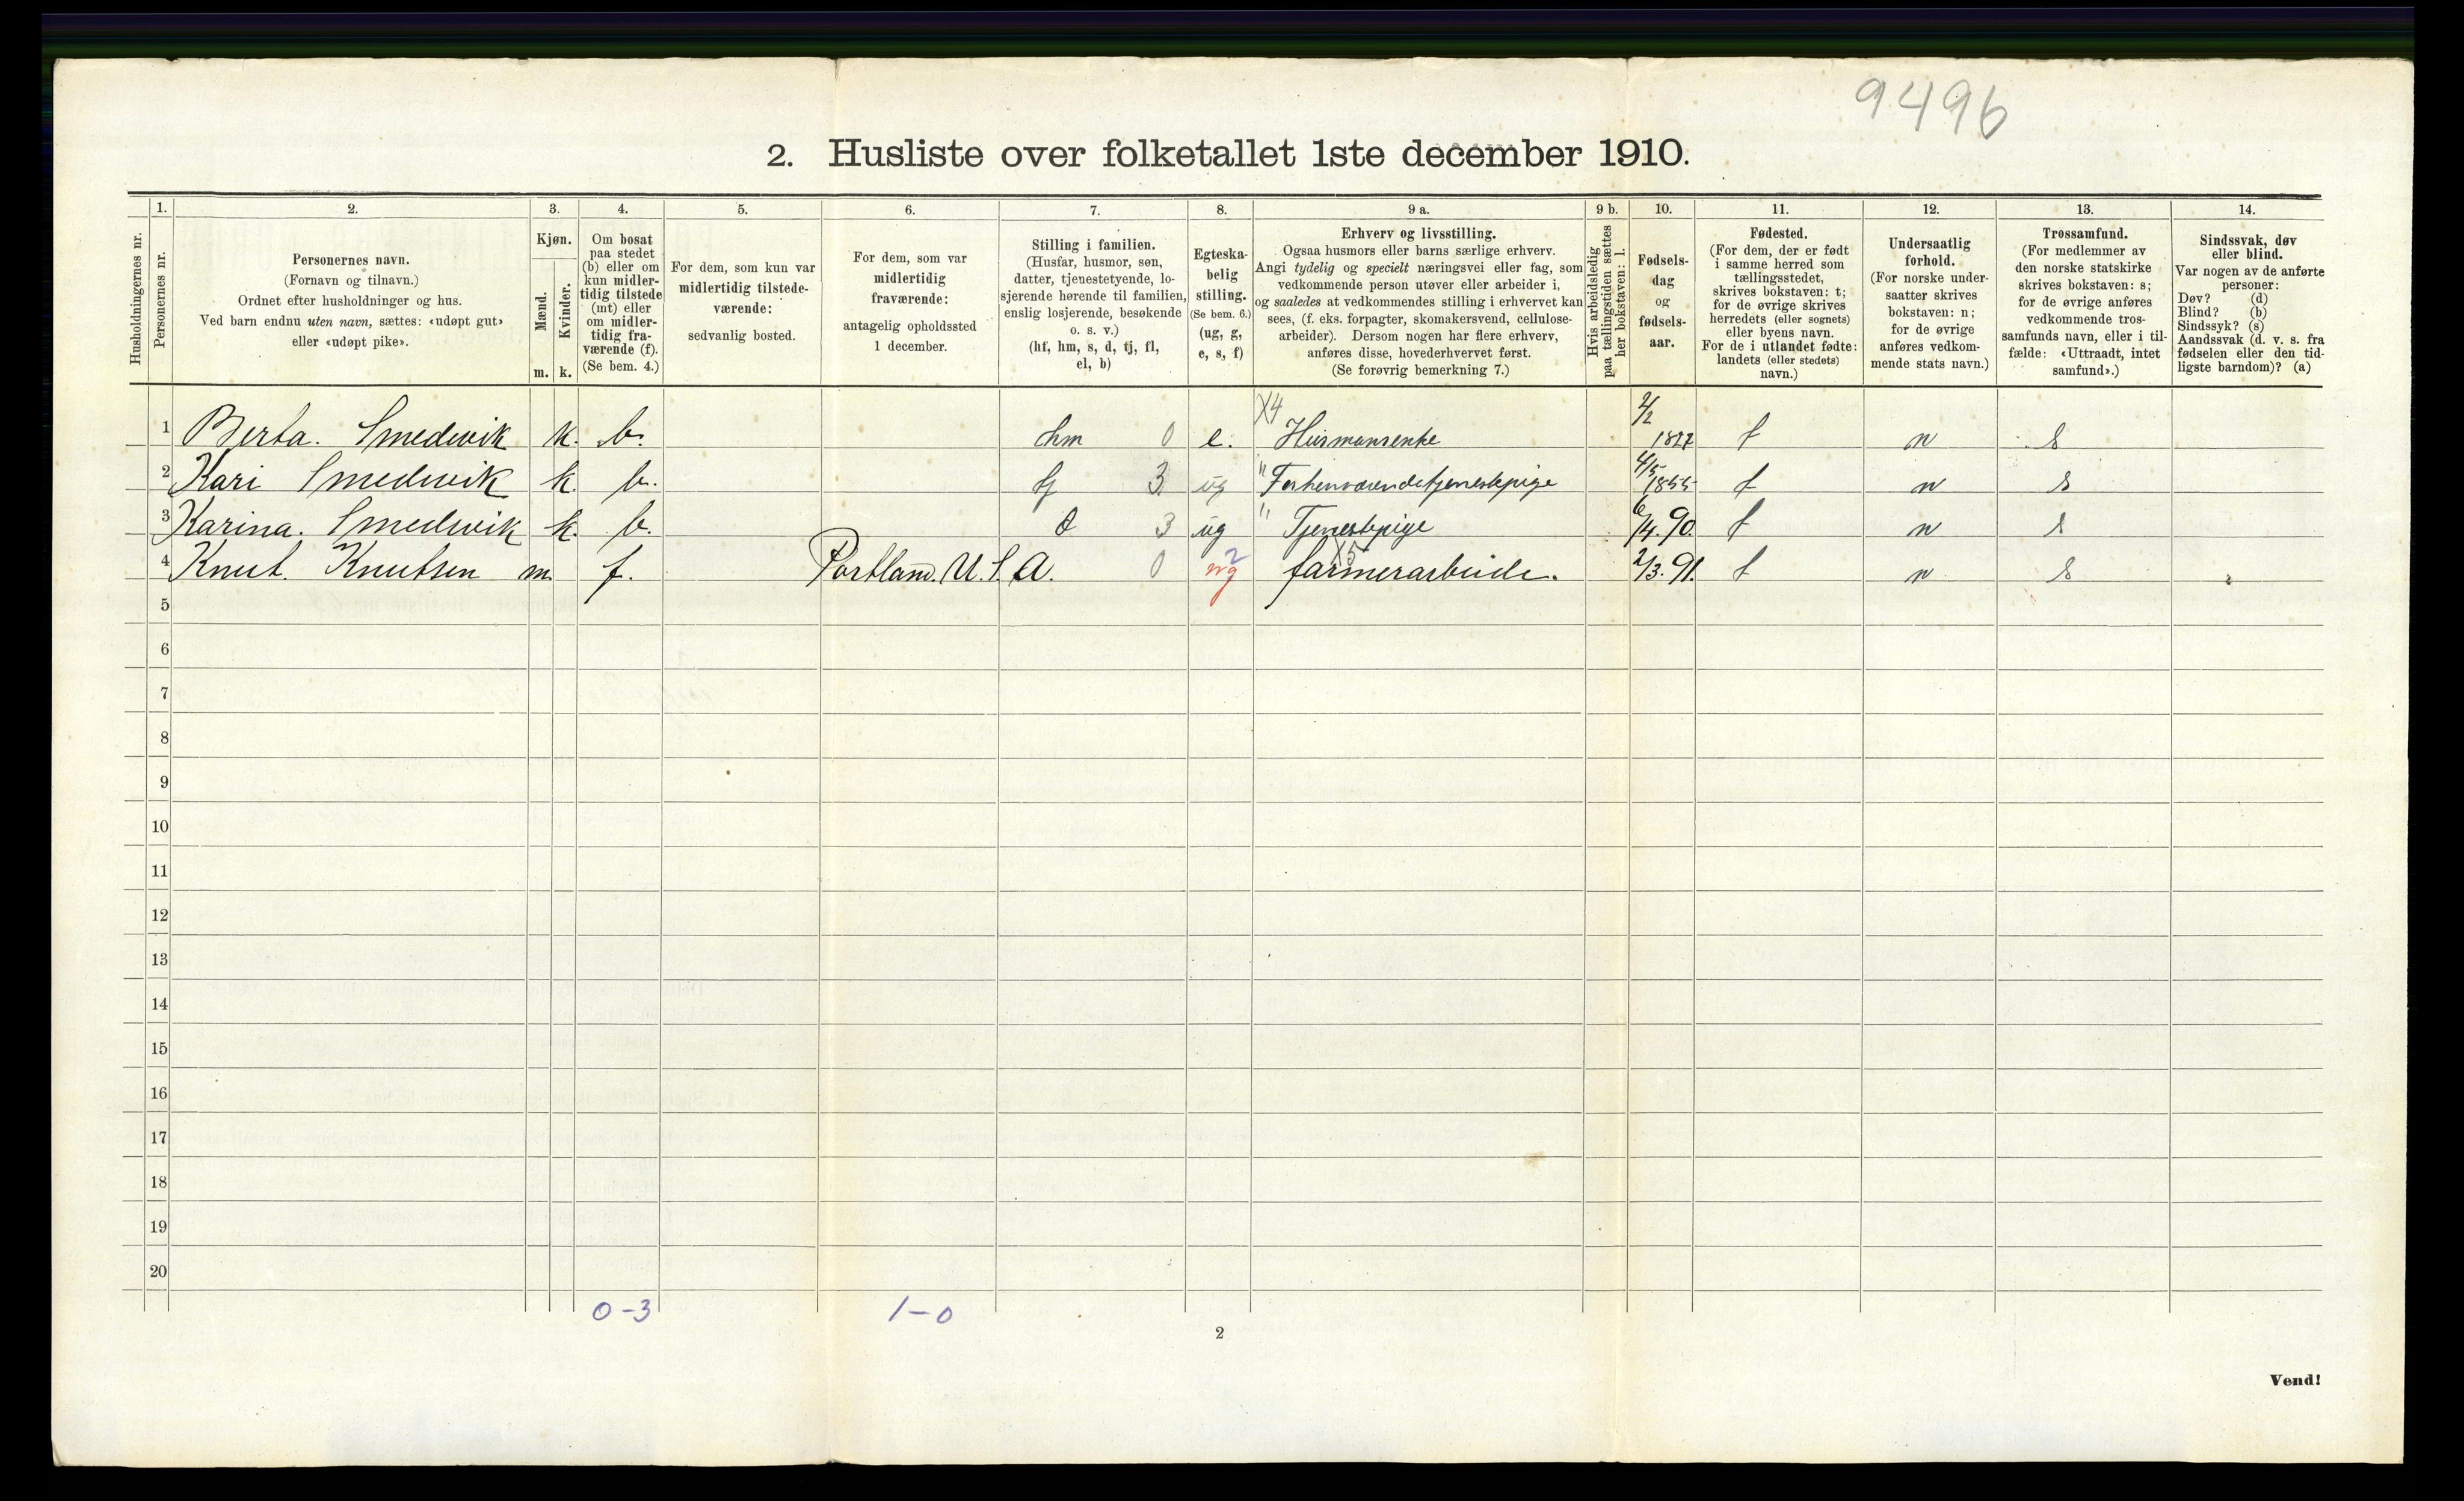 9496
2. Husliste over folketallet 1ste december 1910.
1. 2. 3. 4. 5. 6. 7. 8. 9 a. 9 b. 10. 11. 12. 13. 14.
Husholdningernes nr.
Personernes nr.
Personernes navn.
(Fornavn og tilnavn.)
Ordnet efter husholdninger og hus.
Ved barn endnu uten navn, sættes: «udøpt gut»
eller «udøpt pike».
Kjøn.
Mænd.
Kvinder.
m. k.
Om bosat
paa stedet
(b) eller om
kun midler-
tidig tilstede
(mt) eller
om midler-
tidig fra-
værende (f).
(Se bem. 4.)
For dem, som kun var
midlertidig tilstede-
værende:
sedvanlig bosted.
For dem, som var
midlertidig
fraværende:
antagelig opholdssted
1 december.
Stilling i familien.
(Husfar, husmor, søn,
datter, tjenestetyende, lo-
sjerende hørende til familien,
enslig losjerende, besøkende
o. s. v.)
(hf, hm, s, d, tj, fl,
el, b)
Egteska-
belig
stilling.
(Se bem. 6.)
(ug, g,
e, s, f)
Erhverv og livsstilling.
Ogsaa husmors eller barns særlige erhverv.
Angi tydelig og specielt næringsvei eller fag, som
vedkommende person utøver eller arbeider i,
og saaledes at vedkommendes stilling i erhvervet kan
sees, (f. eks. forpagter, skomakersvend, cellulose-
arbeider). Dersom nogen har flere erhverv,
anføres disse, hovederhvervet først.
(Se forøvrig bemerkning 7.)
Hvis arbeidsledig
paa tællingstiden sættes
her bokstaven: l.
Fødsels-
dag
og
fødsels-
aar.
Fødested.
(For dem, der er født
i samme herred som
tællingsstedet,
skrives bokstaven: t;
for de øvrige skrives
herredets (eller sognets)
eller byens navn.
For de i utlandet fødte:
landets (eller stedets)
navn.)
Undersaatlig
forhold.
(For norske under-
saatter skrives
bokstaven: n;
for de øvrige
anføres vedkom-
mende stats navn.)
Trossamfund.
(For medlemmer av
den norske statskirke
skrives bokstaven: s;
for de øvrige anføres
vedkommende tros-
samfunds navn, eller i til-
fælde: «Uttraadt, intet
samfund».)
Sindssvak, døv
eller blind.
Var nogen av de anførte
personer:
Døv? (d)
Blind? (b)
Sindssyk? (s)
Aandssvak (d. v. s. fra
fødselen eller den tid-
ligste barndom)? (a)
X4 2/2
1 Berta. Smedvik k. b. hm 0 e. Husmansenke 1827 t n s
2 Kari Smedvik k. b. tj 3 ug " Forhenværendetjenestepige 4/5 1855 t n s
3 Karina. Smedvik k. b. d 3 ug " Tjenestepige 6/4.90. t n s
4 Knut. Knutsen m. f. Portland. U.S.A. 0 2 ug X5 farmerarbeide. 2/3.91. t n s
5
6
7
8
9
10
11
12
13
14
15
16
17
18
19
20
0-3 1-0
2
Vend!